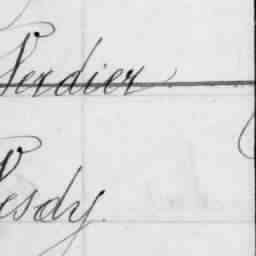 Verdier
Pesdy.